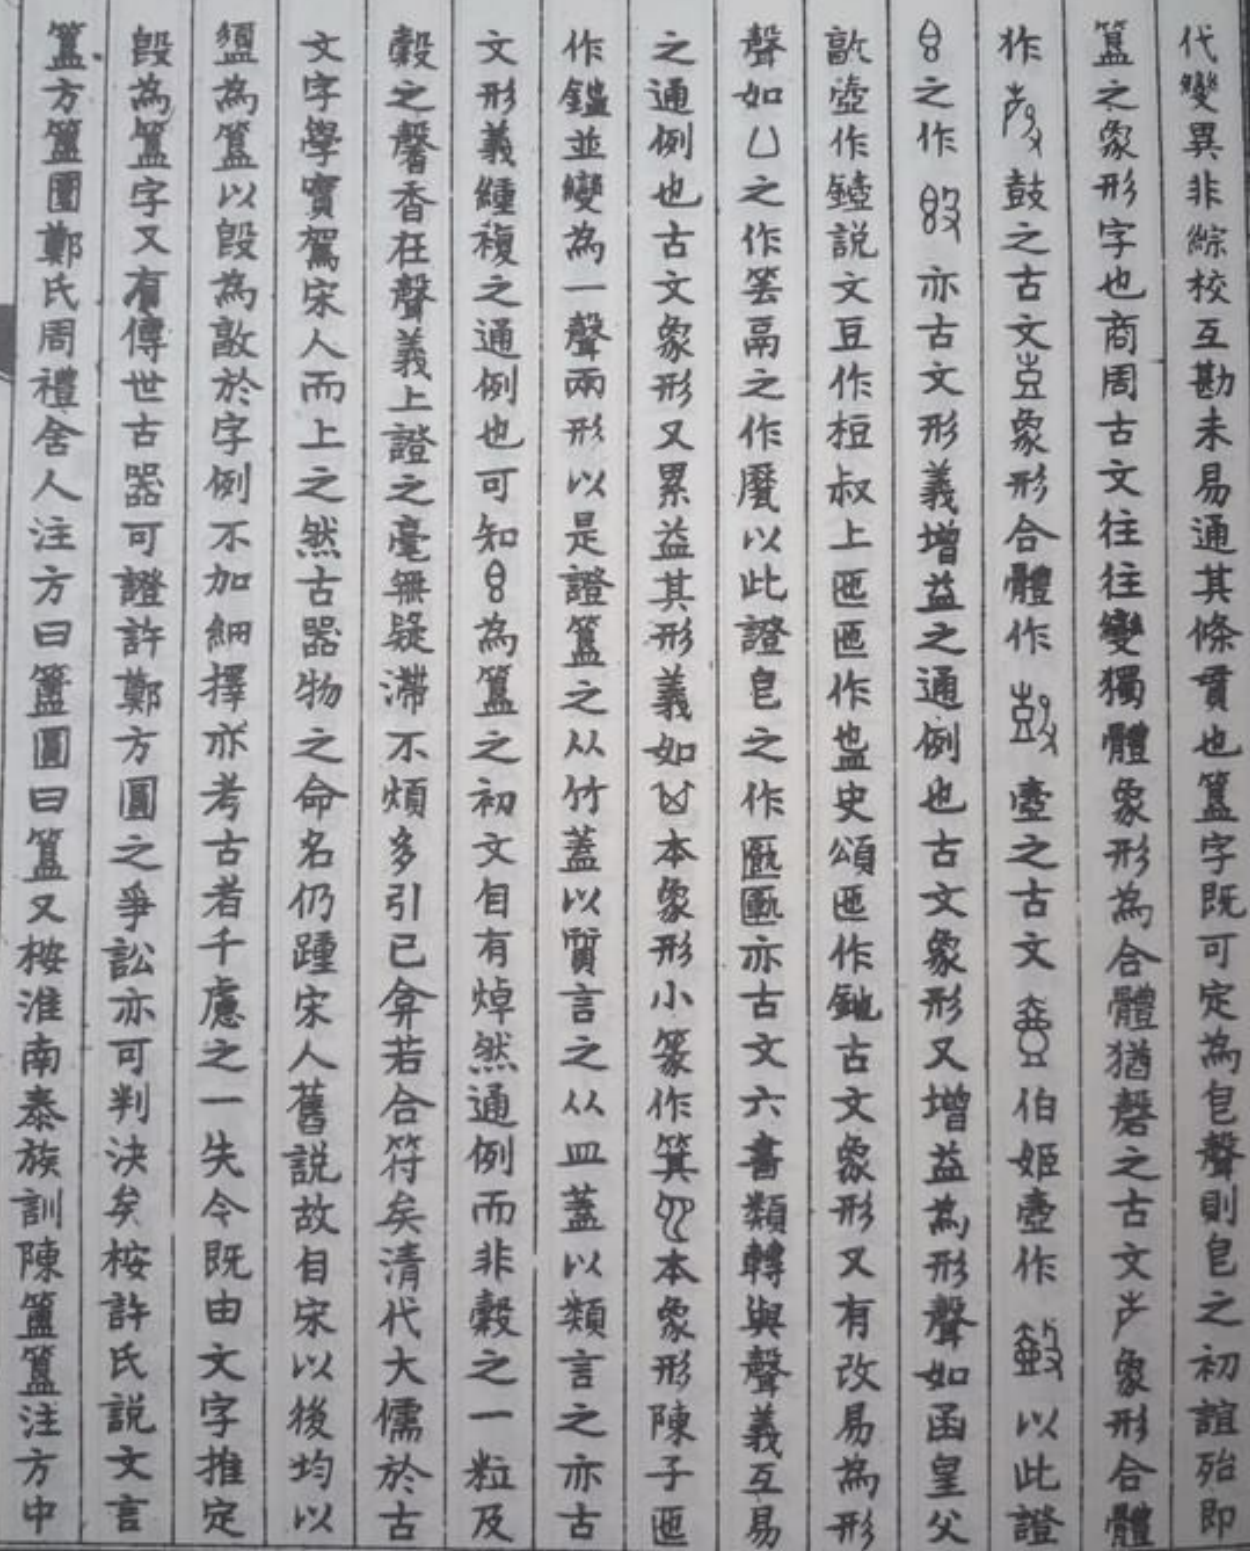 代變異非綜校互勘未易通其條貫也簋字既可定為皀聲則皀之初誼殆即
簋之象形字也商周古文往往變獨體象形為合體猶磬之古文声象形合體
作鼓之古文壴象形合體作壺之古文伯姬壺作以此證
之作亦古文形義增益之通例也古文象形又增益為形聲如函皇父
壺作鐘説文豆作梪叔上匜匜作也史頌匜作鉇古文象形又有改易為形
聲如凵之作䈂鬲之作以此證皀之作亦古文六書類轉與聲義互易
之通例也古文象形又累益其形義如本象形小篆作箕本象形陳子匜
作鎾並變為一聲兩形以是證簋之从竹蓋以質言之从皿蓋以類言之亦古
文形義緟複之通例也可知為簋之初文自有焯然通例而非穀之一粒及
穀之馨香在聲義上證之毫無疑滯不煩多引已弇若合符矣清代大儒於古
文字學實駕宋人而上之然古器物之命名仍踵宋人舊説故自宋以後均以
盨為簋以㲃為敦於字例不加細擇亦考古者千慮之一失今既由文字推定
㲃為簋字又有傳世古器可證許鄭方圓之爭訟亦可判決矣桉許氏説文言
簋方簠圜鄭氏周禮舍人注方曰簠圓曰簋又桉淮南泰族訓陳簠簋注方中